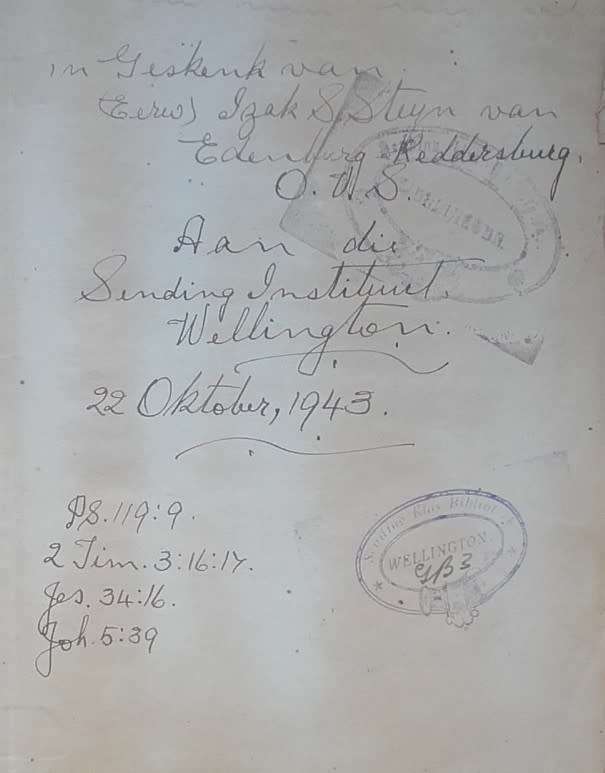 in Geskenk van
(Eerw) Izak S. Steyn van
Edenburg-Reddersburg.
O.V.S.
Aan die
Sending Instituut.
Wellington.
22 Oktober, 1943.
PS. 119:9.
2 Tim. 3:16:17.
Jes. 34:16.
Joh. 5:39
WELLINGTON.